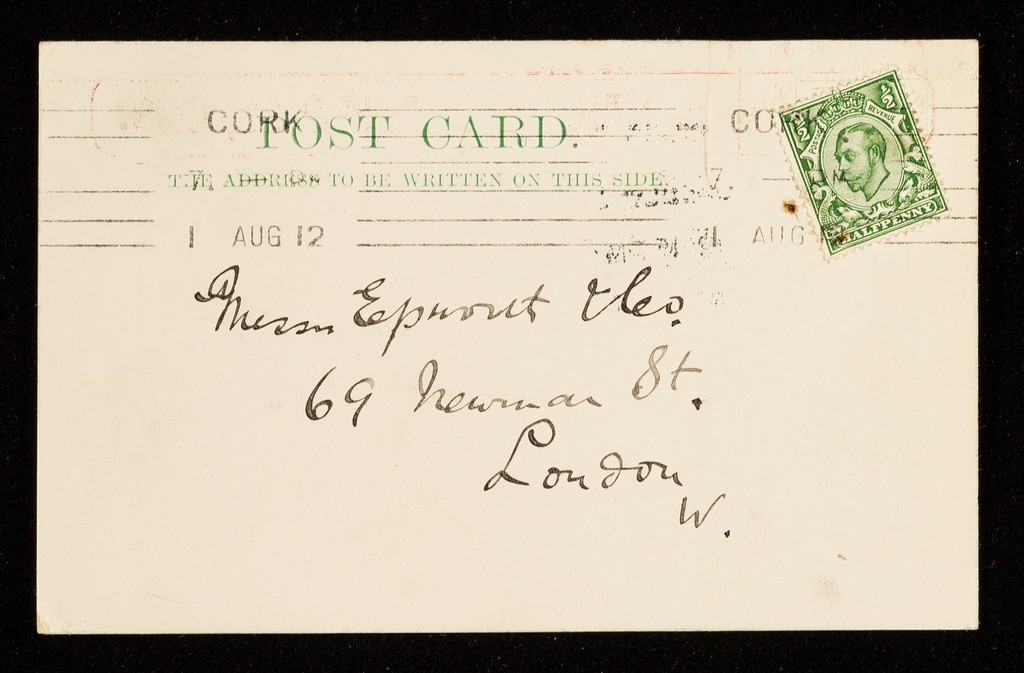 CORK
POST CARD.
THE ADDRESS TO BE WRITTEN ON THIS SIDE.
7
1 AUG 12
CORK
7
1 AUG 12
½ ½
POSTAGE REVENUE
HALFPENNY
Messrs Epworth & Co.
69 Newman St.
London
W.